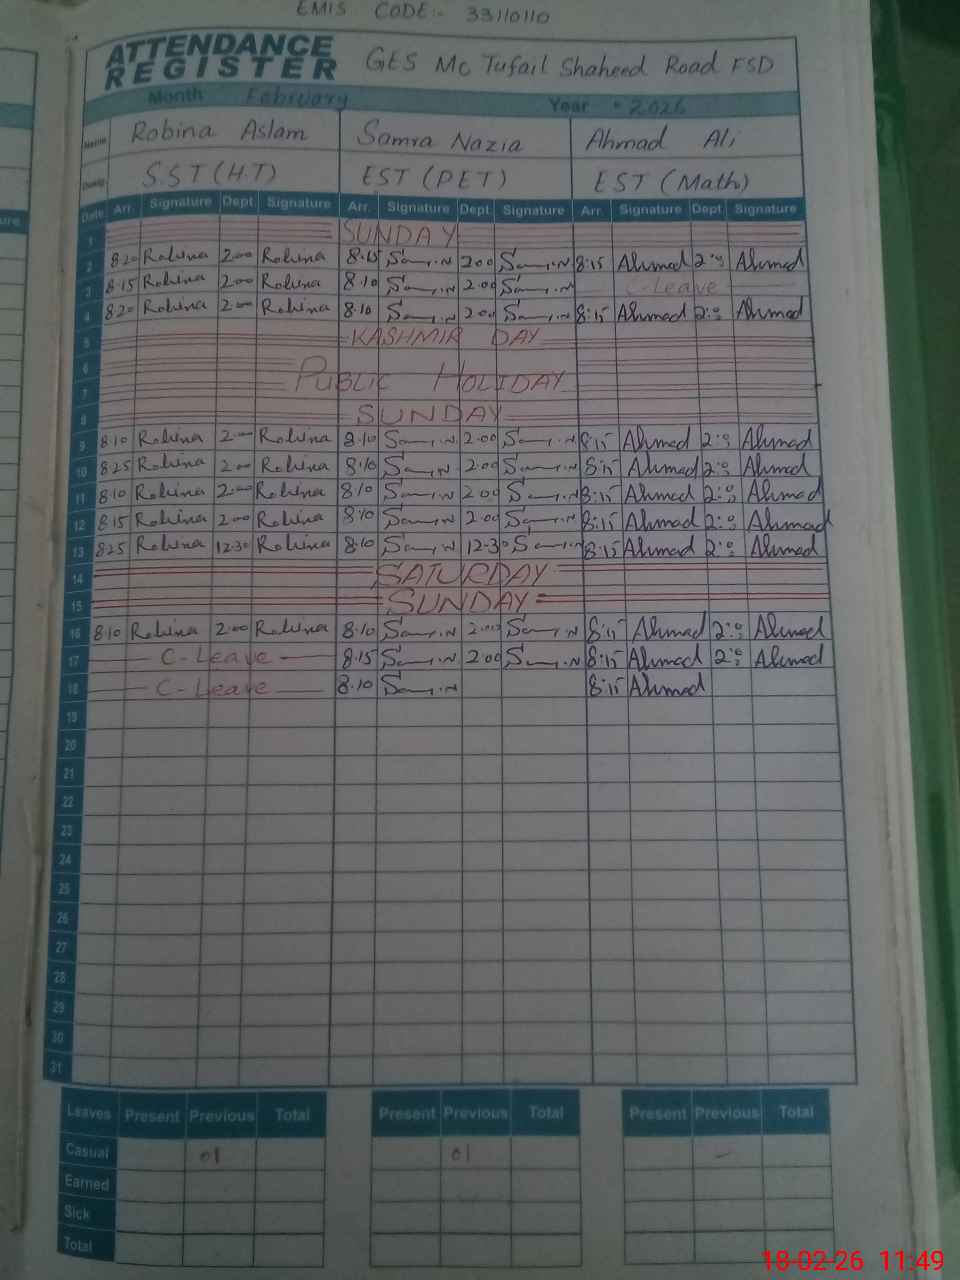 EMIS CODE:- 33110110
ATTENDANCE REGISTER GES MC Tufail Shaheed Road FSD
Month February Year 2026
Name Robina Aslam Samra Nazia Ahmad Ali
Desig S.ST (H.T) EST (PET) EST (Math)
Date Arr. Signature Dept. Signature Arr. Signature Dept. Signature Arr. Signature Dept. Signature
1 SUNDAY
2 8.20 Robina 2.00 Robina 8.15 Sam.N 2.00 Sam.N 8:15 Ahmad 2:00 Ahmad
3 8.15 Robina 2.00 Robina 8.10 Sam.N 2.00 Sam.N C-Leave
4 8.20 Robina 2.00 Robina 8.10 Sam.N 2.00 Sam.N 8:15 Ahmad 2:00 Ahmad
5 KASHMIR DAY
6
PUBLIC HOLIDAY
7
8 SUNDAY
9 8.10 Robina 2.00 Robina 8.10 Sam.N 2.00 Sam.N 8:15 Ahmad 2:00 Ahmad
10 8.25 Robina 2.00 Robina 8.10 Sam.N 2.00 Sam.N 8:15 Ahmad 2:00 Ahmad
11 8.10 Robina 2.00 Robina 8.10 Sam.N 2.00 Sam.N 8:15 Ahmad 2:00 Ahmad
12 8.15 Robina 2.00 Robina 8.10 Sam.N 2.00 Sam.N 8:15 Ahmad 2:00 Ahmad
13 8.25 Robina 12.30 Robina 8.10 Sam.N 12.30 Sam.N 8:15 Ahmad 2:00 Ahmad
14 SATURDAY
15 SUNDAY
16 8.10 Robina 2.00 Robina 8.10 Sam.N 2.00 Sam.N 8:15 Ahmad 2:00 Ahmad
17 C-Leave 8.15 Sam.N 2.00 Sam.N 8:15 Ahmad 2:00 Ahmad
18 C-Leave 8.10 Sam.N 8:15 Ahmad
19
20
21
22
23
24
25
26
27
28
29
30
31
Leaves Present Previous Total Present Previous Total Present Previous Total
Casual 01 01 -
Earned
Sick
Total
18-02-26 11:49